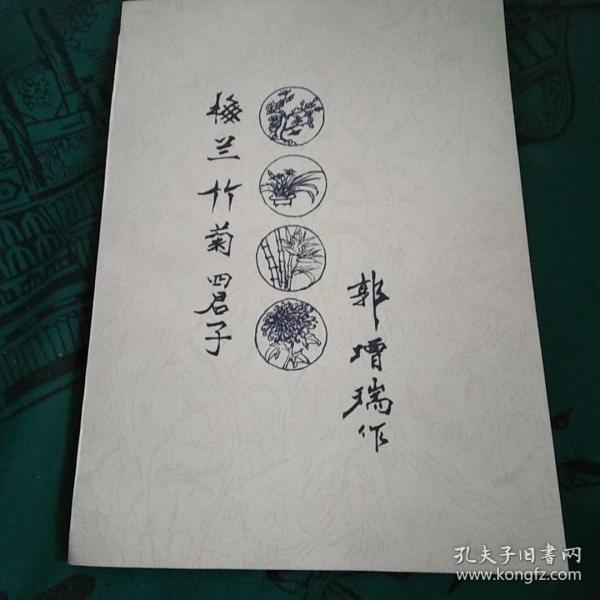 梅兰竹菊四君子
郭增瑞作
孔夫子旧书网
www.kongfz.com